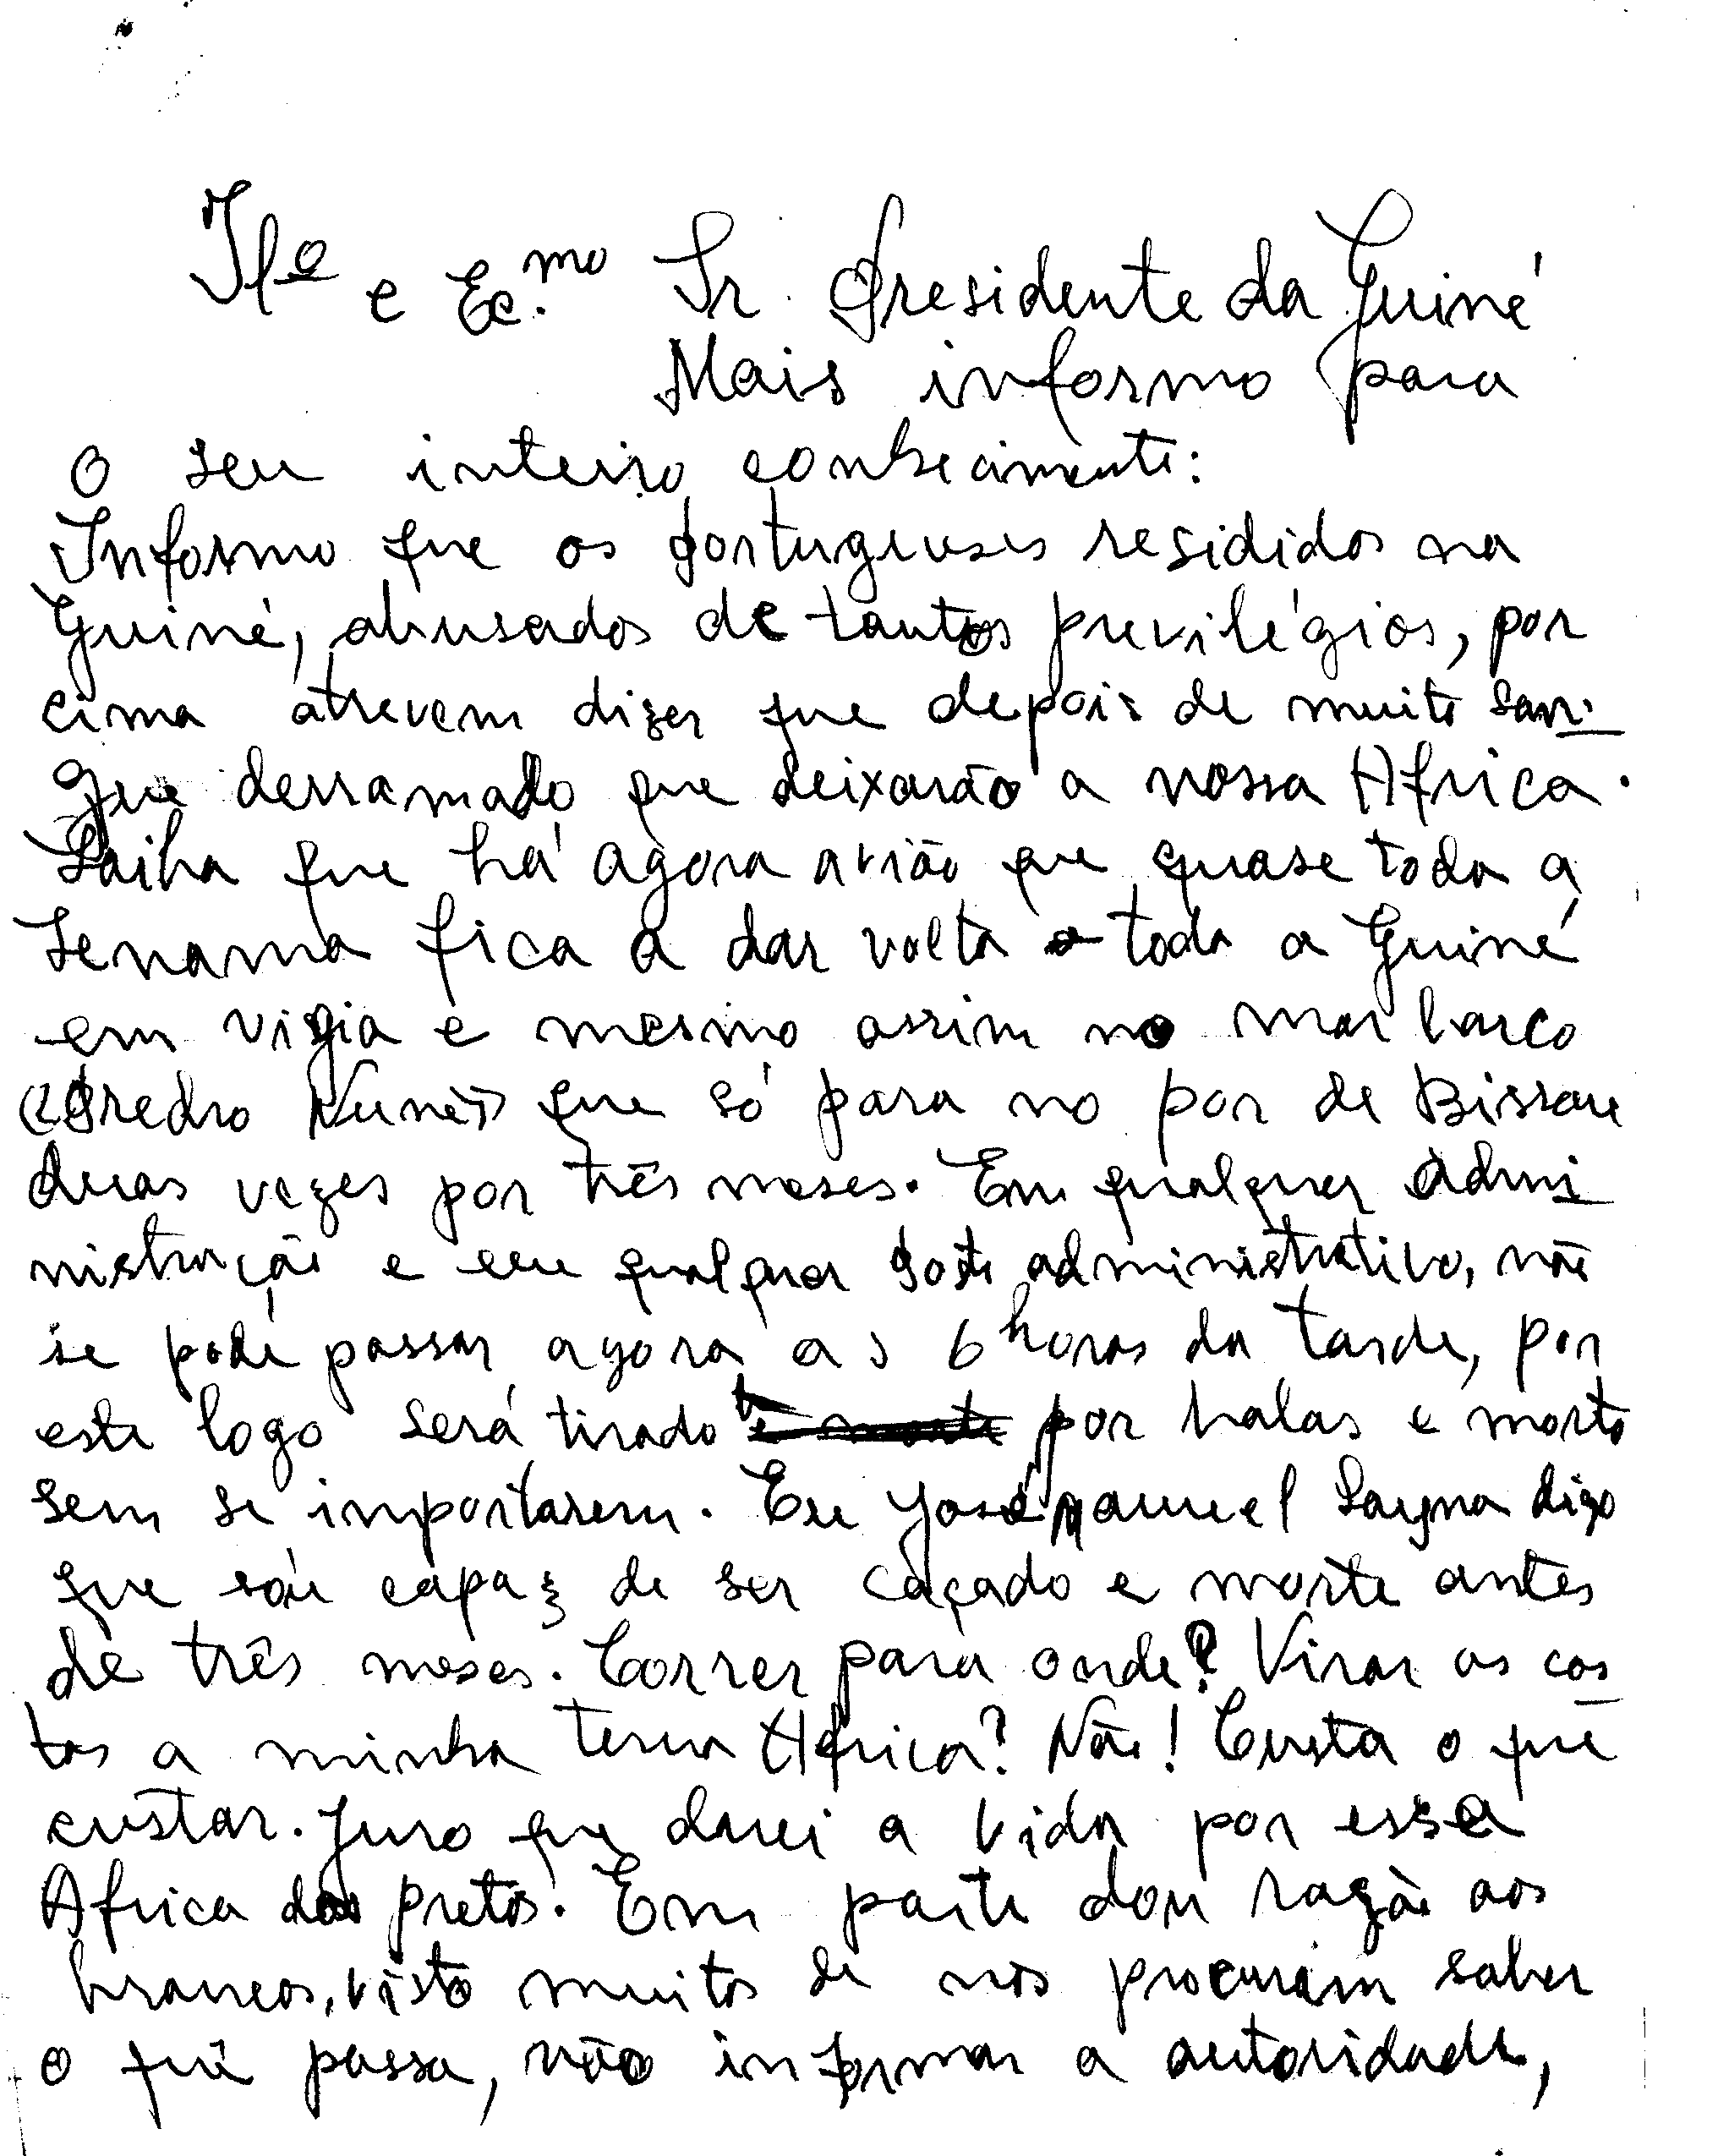 Ilº e Ec.mo Sr. Presidente da Guiné
Mais informo para
o seu inteiro conhecimento:
Informo que os portugueses resididos na
Guiné, abusados de tantos previlégios, por
cima atrevem dizer que depois de muito san-
gue derramado que deixarão a nossa Africa.
Saiba que há agora avião que quase toda a
semana fica a dar volta a toda a Guiné
em vigia e mesmo assim no mar barco
«Pedro Nunes» que só para no por de Bissau
duas vezes por três meses. Em qualquer admi
nistração e em qualquer posto administrativo, não
se pode passar agora as 6 horas da tarde, por
este logo será tirado por balas e morto
sem se importarem. Eu José Manuel Sagna digo
que sou capaz de ser caçado e morto antes
de três meses. Correr para onde? Virar as cos
tas a minha terra Africa? Não! Custa o que
custar. Juro que darei a vida por essa
Africa dos pretos. Em parte dou razão aos
brancos, visto muitos de nós procuram saber
o que passa, não informar a autoridade,